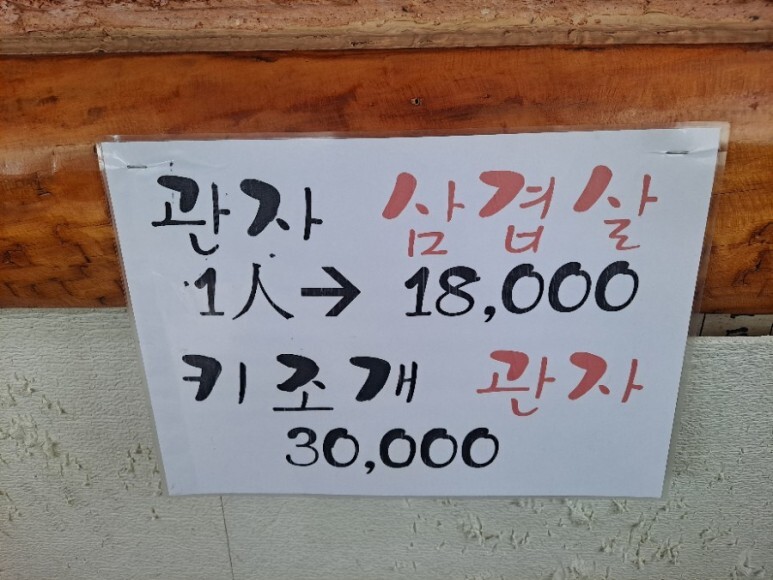 관자 삼겹살
1人→ 18,000
키조개 관자
30,000